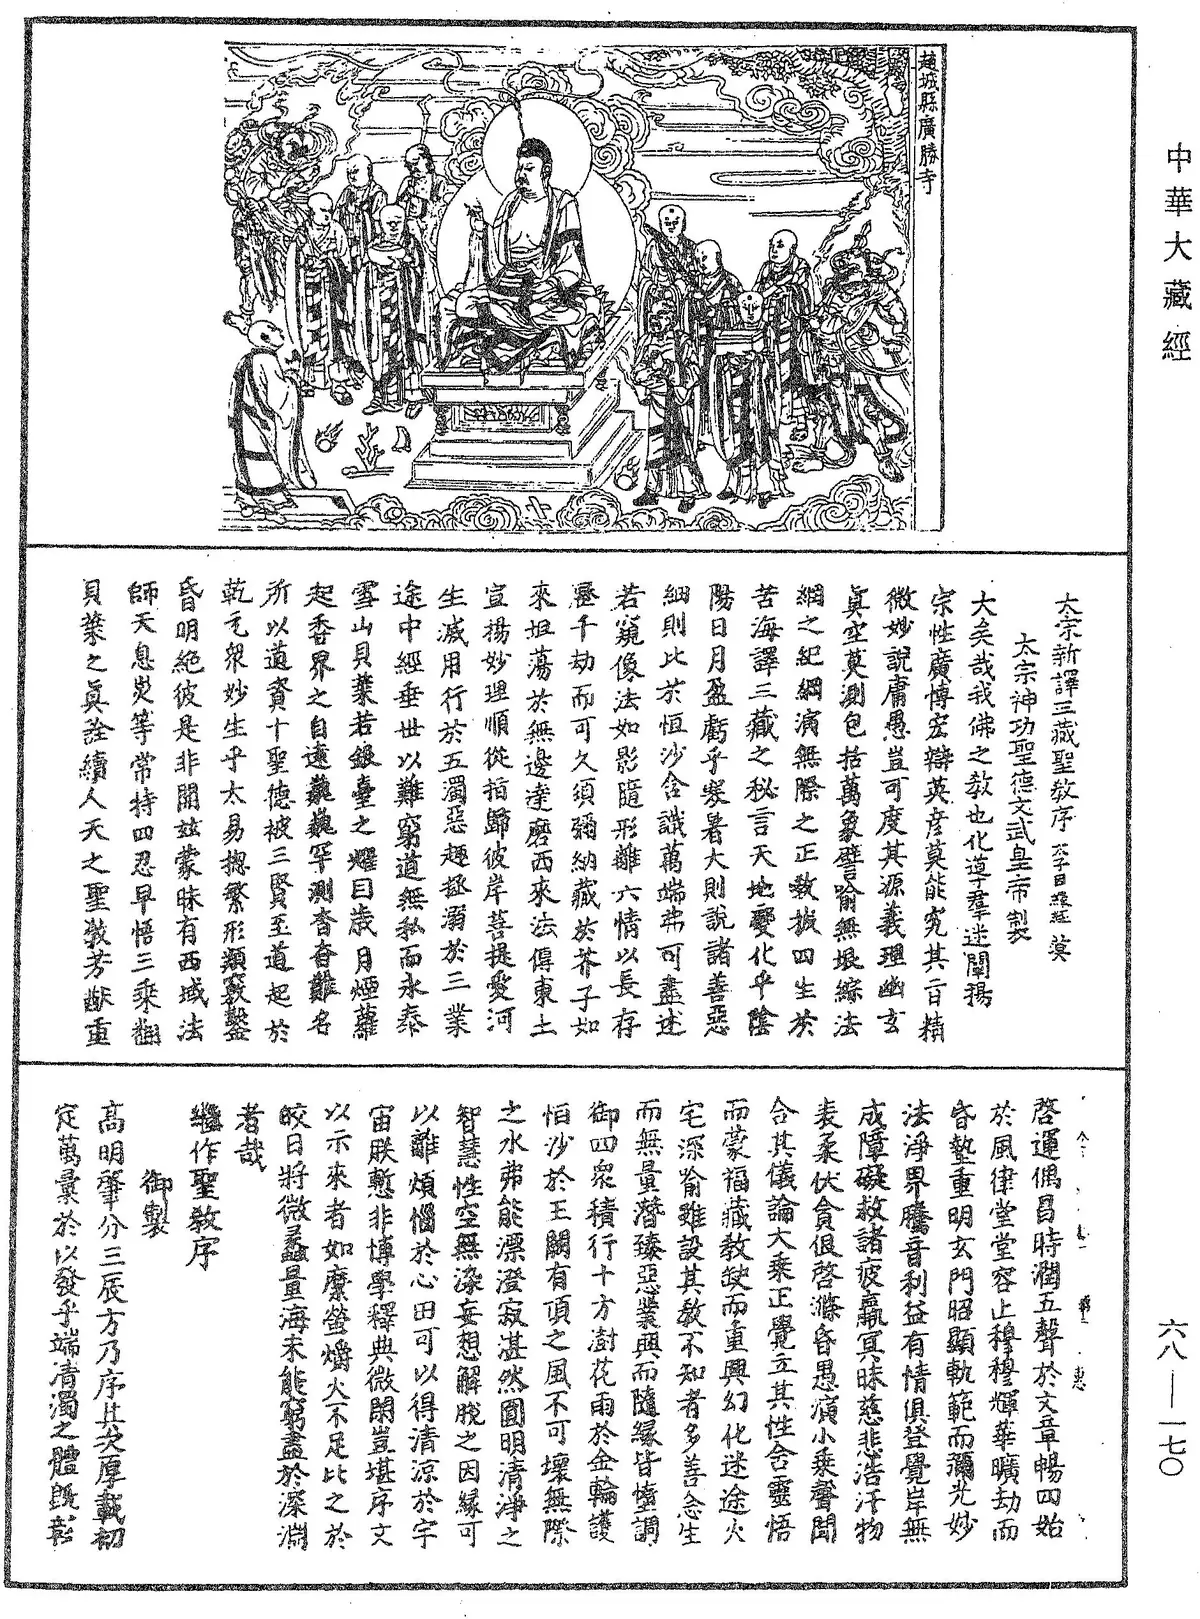 中華大藏經
趙城縣廣勝寺
太宗新譯三藏聖教序
太宗神功聖德文武皇帝製
大矣哉我佛之教也化導羣迷闡揚
宗性廣博宏辯英彥莫能究其旨精
微妙說庸愚豈可度其源義理幽玄
真空莫測包括萬象譬喻無垠綜法
網之紀綱演無際之正教拔四生於
苦海譯三藏之秘言天地變化乎陰
陽日月盈虧乎寒暑大則說諸善惡
細則比於恒沙含識萬端弗可盡述
若窺像法如影隨形離六情以長存
歷千劫而可久須彌納藏於芥子如
來坦蕩於無邊達磨西來法傳東土
宣揚妙理順從指歸彼岸菩提愛河
生滅用行於五濁惡趣拯溺於三業
途中經垂世以難窮道無私而永泰
雪山貝葉若銀臺之耀目歲月煙蘿
起香界之自遠巍巍罕測杳杳難名
所以道資十聖德被三賢至道起於
乾元衆妙生乎太易摠繁形類竅鑿
昏明絕彼是非開茲蒙昧有西域法
師天息災等常持四忍早悟三乘翻
貝葉之真詮續人天之聖教芳猷重
啓運偶昌時潤五聲於文章暢四始
於風律堂堂容止穆穆輝華曠劫而
昏墊重明玄門昭顯軌範而彌光妙
法淨界騰音利益有情俱登覺岸無
成障礙救諸疲羸冥昧慈悲浩汗物
表柔伏貪很啓滌昏愚演小乘聲聞
合其儀論大乘正覺立其性含靈悟
而蒙福藏教缺而重興幻化迷途火
宅深喻雖設其教不知者多善念生
而無量潛臻惡業興而隨緣皆墮調
御四衆積行十方澍花雨於金輪護
恒沙於王闕有頂之風不可壞無際
之水弗能漂澄寂湛然圓明清淨之
智慧性空無染妄想解脫之因緣可
以離煩惱於心田可以得清涼於宇
宙朕慙非博學釋典微閑豈堪序文
以示來者如縻螢爝火不足比之於
皎日將微蠡量海未能窮盡於深淵
者哉
繼作聖教序
御製
高明肇分三辰方乃序其次厚載初
定萬彙於以發乎端清濁之體既彰
六八—一七〇